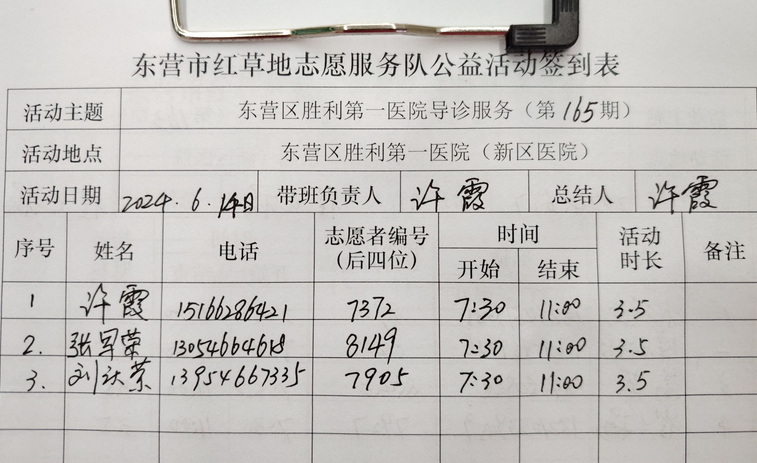 东营市红草地志愿服务队公益活动签到表
活动主题 东营区胜利第一医院导诊服务（第165期）
活动地点 东营区胜利第一医院（新区医院）
活动日期 2024.6.14日 带班负责人 许霞 总结人 许霞
序号 姓名 电话 志愿者编号（后四位） 时间 开始 结束 活动时长 备注
1 许霞 15166286421 7372 7:30 11:00 3.5
2. 张早荣 13054664618 8149 7:30 11:00 3.5
3. 刘荣 13954667335 7905 7:30 11:00 3.5